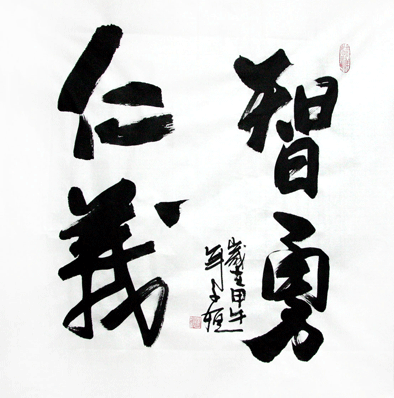 智勇
仁義
歲在甲午